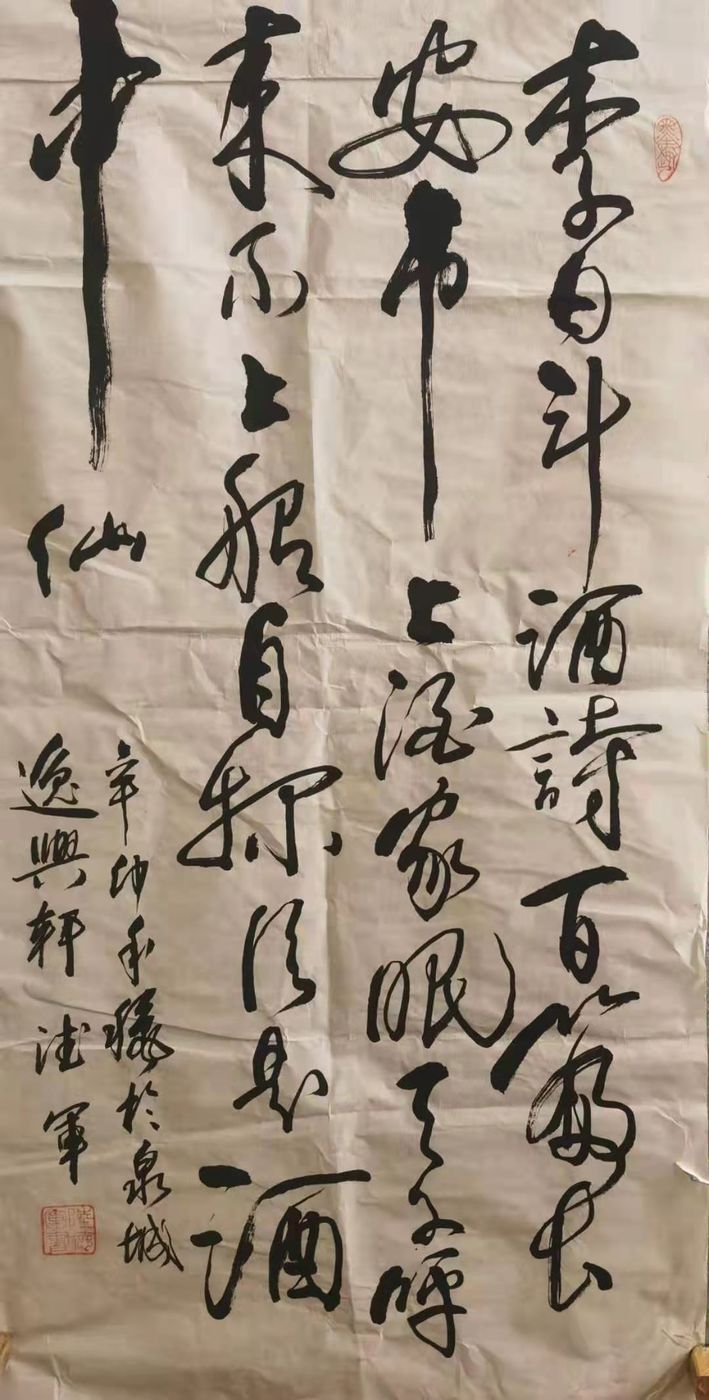 李白斗酒詩百篇长
安市上酒家眠天子呼
来不上船自称臣是酒
中仙
辛卯於泉城
逸興軒軍